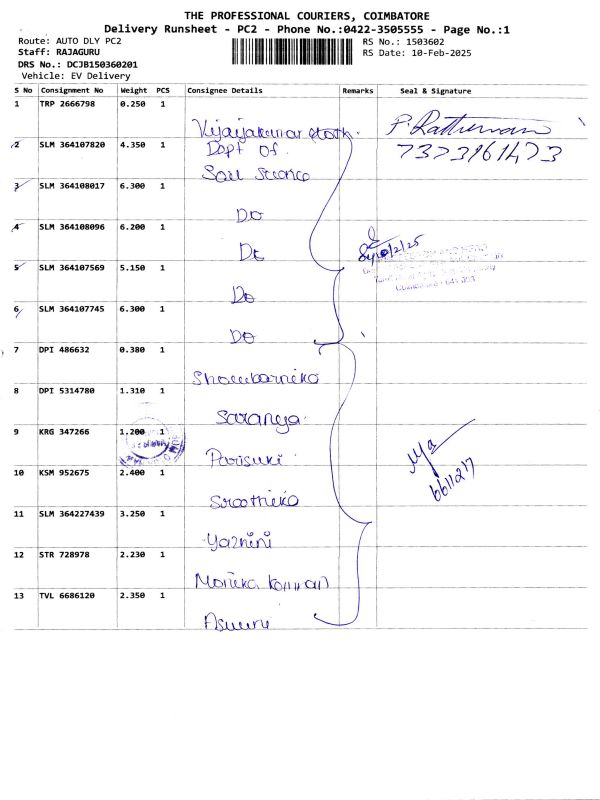 THE PROFESSIONAL COURIERS, COIMBATORE
Delivery Runsheet - PC2 - Phone No.:0422-3505555 - Page No.:1
Route: AUTO DLY PC2
Staff: RAJAGURU
DRS No.: DCJB150360201
Vehicle: EV Delivery
RS No.: 1503602
RS Date: 10-Feb-2025
S No Consignment No Weight PCS Consignee Details Remarks Seal & Signature
1 TRP 2666798 0.250 1 Vijayakumar
2 SLM 364107820 4.350 1 Dept of
3 SLM 364108017 6.300 1 Soil Science
4 SLM 364108096 6.200 1 Do
5 SLM 364107569 5.150 1 Do
6 SLM 364107745 6.300 1 Do
7 DPI 486632 0.380 1 Do
8 DPI 5314780 1.310 1
9 KRG 347266 1.200 1 Saranya
10 KSM 952675 2.400 1
11 SLM 364227439 3.250 1
12 STR 728978 2.230 1 Yazhini
13 TVL 6686120 2.350 1 Monika